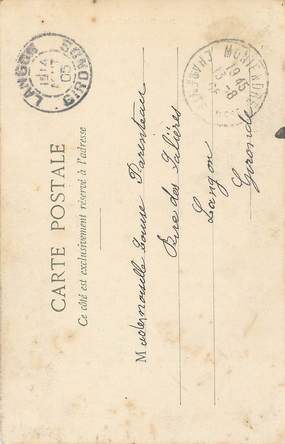 CARTE POSTALE
Ce côté est exclusivement réservé à l'adresse
LANGON GIRONDE
AOUT
05
19 45
Mademoiselle Louise Parenteau
Rue des Salières
Langon
Gironde